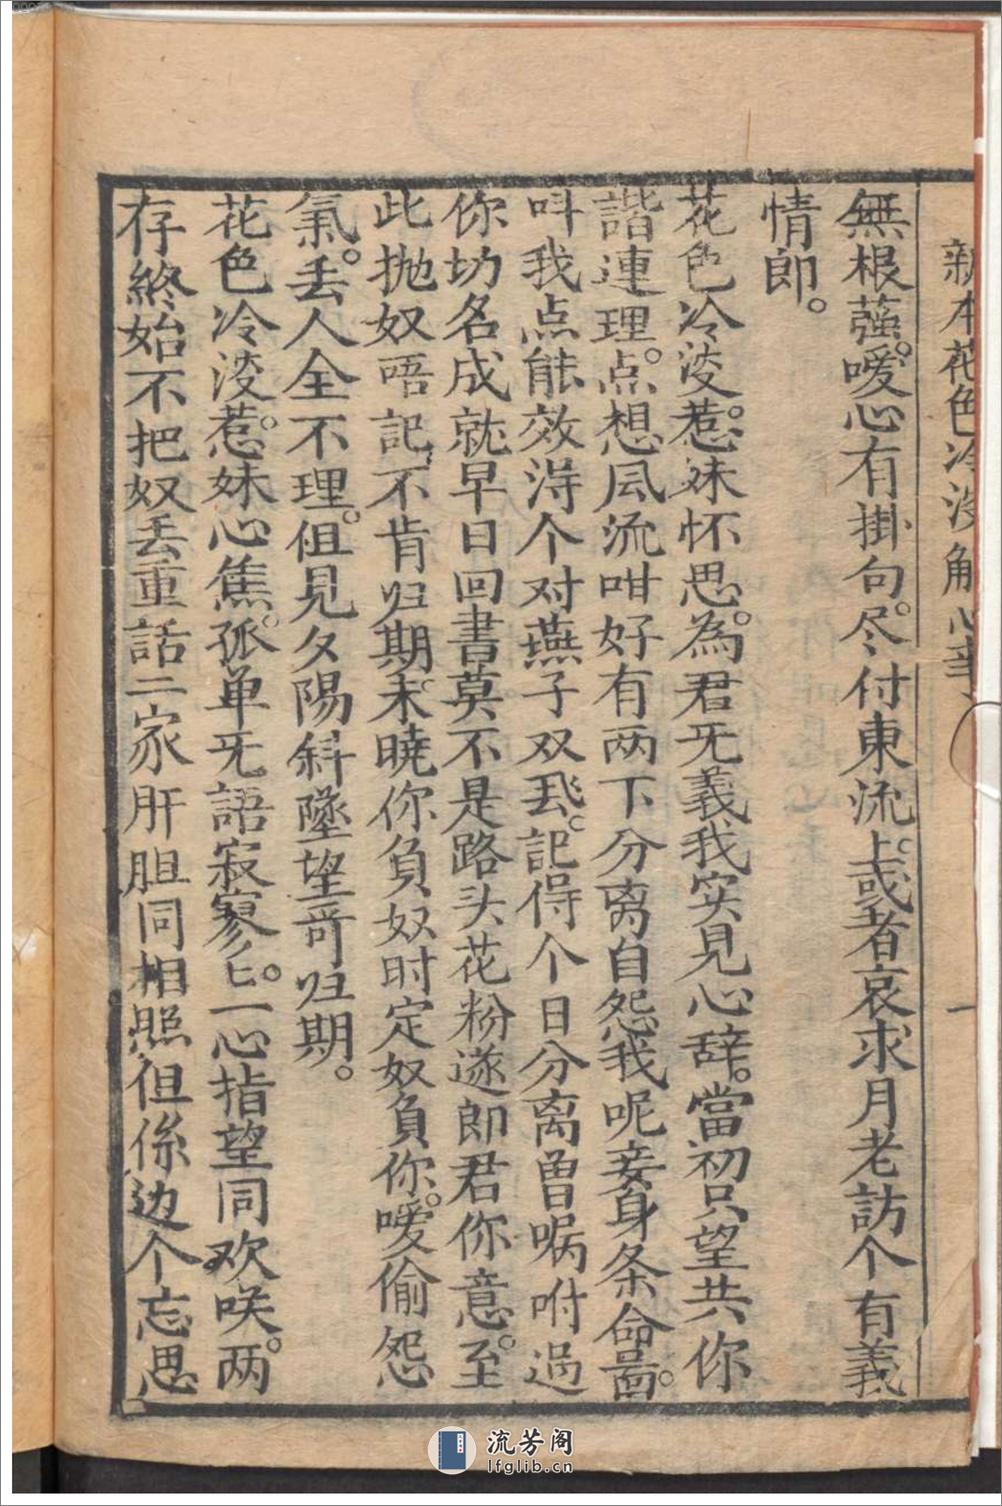 新本花色冷淡解心事 一
無根蕅。嗳心有掛句。尽付東流上。或者哀求月老訪个有義
情郎。
花色冷淡惹。妹怀思。為君旡義我实見心辞。當初只望共你
諧連理。点想凨流咁好有两下分离自怨我呢妾身条命啚。
呌我点能效淂个对燕子双飛。記得个日分离曽嘱咐過
你坊名成就早日回書莫不是路头花粉遂郎君你意。至
此抛奴唔記不肯归期。未曉你負奴时定奴負你。嗳偷怨
氣。丢人全不理。但見夕陽斜墜望哥归期。
花色冷淡惹。妹心焦。孤单旡語寂寥匕。一心指望同欢咲。两
存終始不把奴丢重話二家肝胆同相照但係边个忘思
流芳阁
lfglib.cn